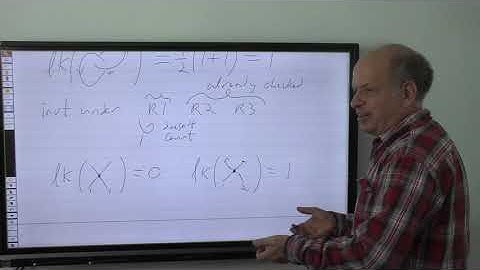 lk( ) = 1/2 (1+1) = 1
already checked
invt under R1 R2 R3
doesn't
count
lk( ) = 0 lk( ) = 1